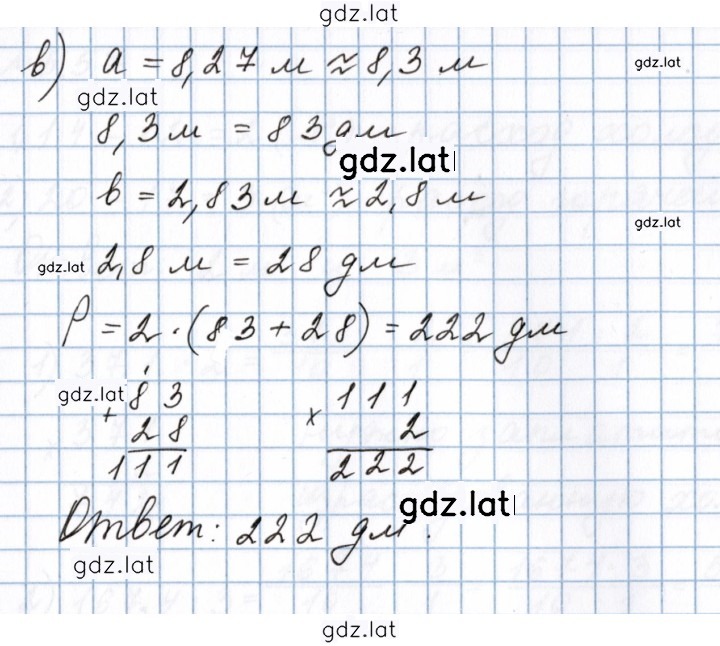 gdz.lat
в) a = 8,27 м ≈ 8,3 м
gdz.lat
gdz.lat
8,3 м = 83 дм
gdz.lat
в = 2,83 м ≈ 2,8 м
gdz.lat
gdz.lat 2,8 м = 28 дм
P = 2 · (83 + 28) = 222 дм
gdz.lat
+ 83
28
111
x 111
2
222
gdz.lat
Ответ: 222 дм.
gdz.lat
gdz.lat